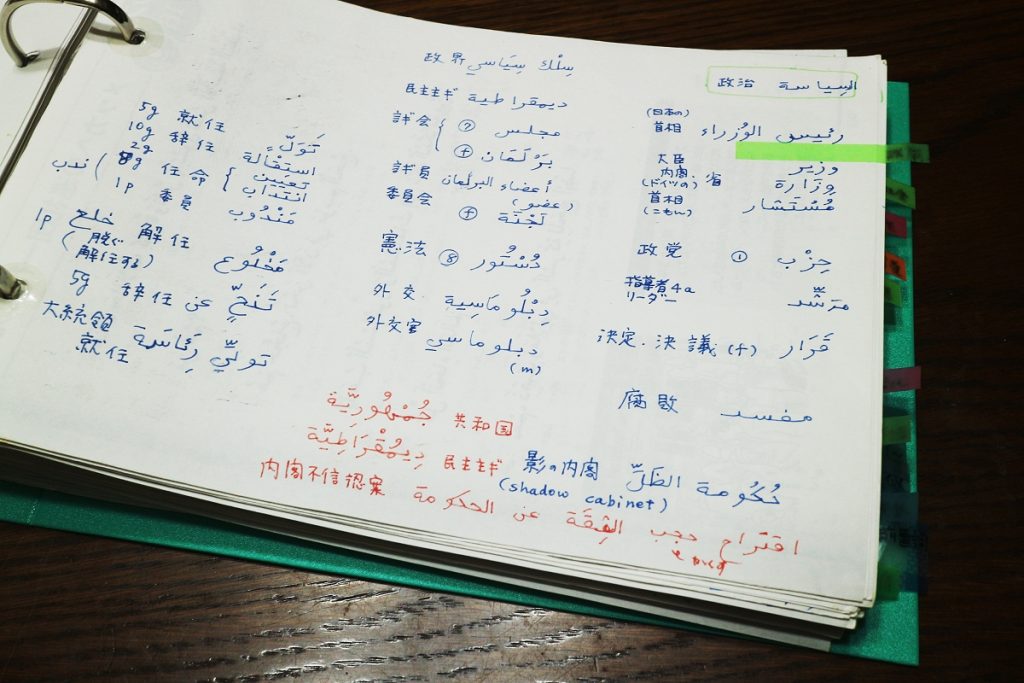 السياسة 政治
رئيس الوُزراء (日本の) 首相
وزير 大臣
وِزَارة 内閣、省
مُسْتَشار (ドイツの) 首相
حِزْب ① 政党
مَرشّد 指導者 4a リーダー
قَرَار 決定、決議 (f)
مفسد 腐敗
حُكُومة الظِّلّ 影の内閣 (shadow cabinet)
سِلْك سِيَاسي 政界
ديمقراطية 民主主ギ
مجلس ⑦ 議会
بَرْلَمَان ⓕ
أعضاء البرلمان (عضو) 議員
لَجْنَة ⓕ 委員会
دُسْتُور ⑧ 憲法
دِبْلُومَاسِية 外交
دبلوماسي (m) 外交官
تَوَلٍّ 5g 就任
استقالة 10g 辞任
تعيين 2g 任命
انتداب 8g ندب
مَنْدُوب 1p 委員
خلع 解任
مَخْلُوع 1p (脱ぐ 解任する)
تَنَحٍّ عن 辞任 5g
تولّي رِئَاسَة 大統領就任
جُمْهُورِيَّة 共和国
دِيمُقْرَاطِيَّة 民主主ギ
اقتراح حجب الثِّقَة عن الحكومة 内閣不信認案